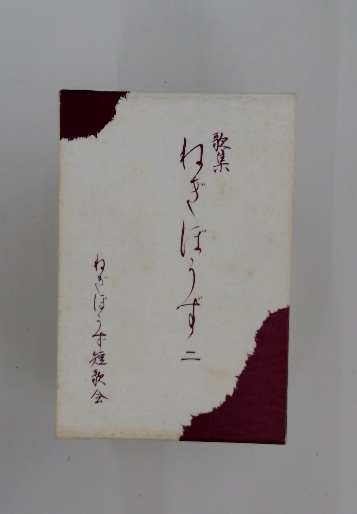 歌集
ねぎぼうず 二
ねぎぼうず短歌会